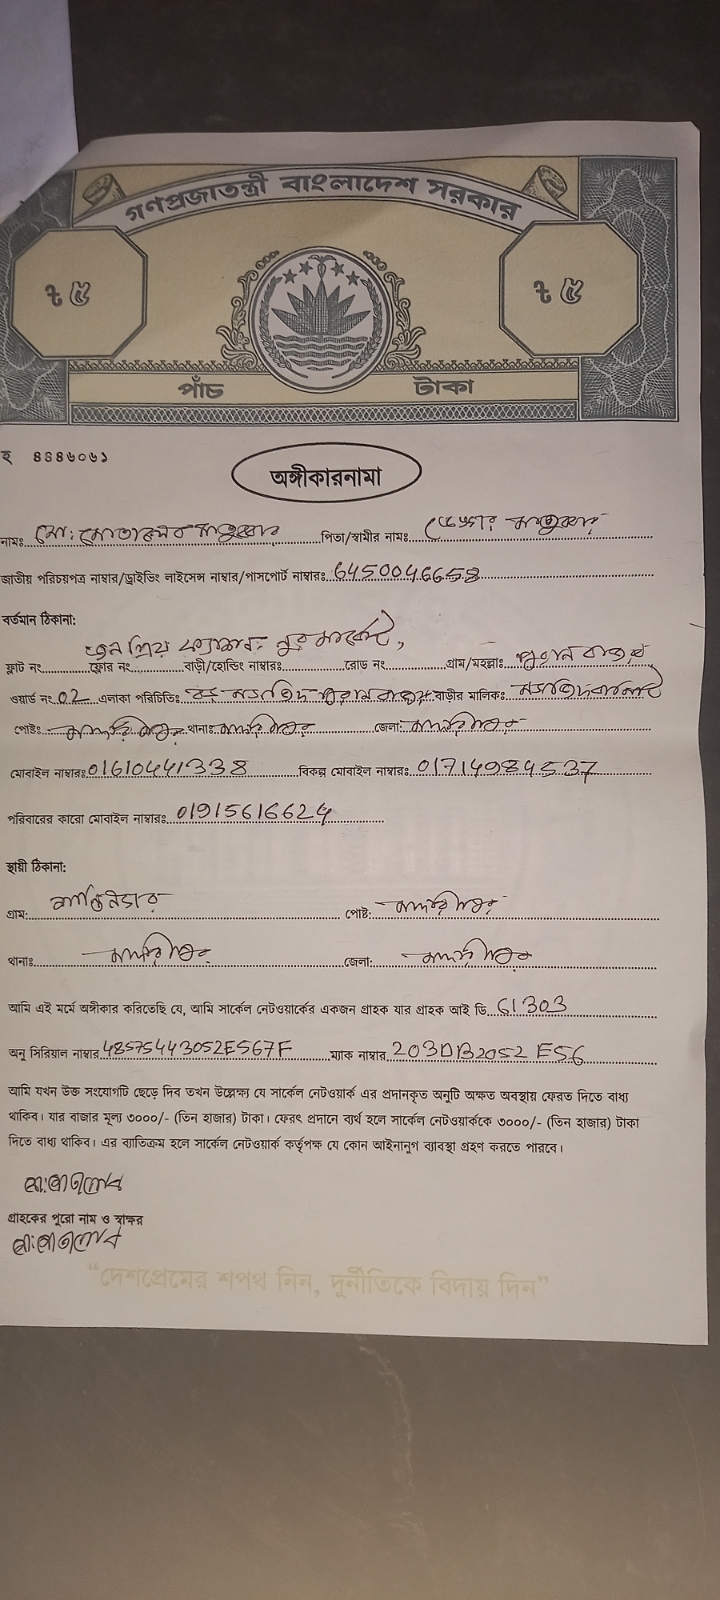 গণপ্রজাতন্ত্রী বাংলাদেশ সরকার
ট ৫ ট ৫
পাঁচ টাকা
হ ৪৪৪৬০৬১
অঙ্গীকারনামা
নামঃ মো: মোতালেব পিতা/স্বামীর নামঃ
জাতীয় পরিচয়পত্র নাম্বার/ড্রাইভিং লাইসেন্স নাম্বার/পাসপোর্ট নাম্বারঃ 6450046658
বর্তমান ঠিকানা:
ফ্লাট নং ফ্লোর নং বাড়ী/হোল্ডিং নাম্বারঃ রোড নং গ্রাম/মহল্লাঃ পুরান বাজার
ওয়ার্ড নং 02 এলাকা পরিচিতিঃ বাড়ীর মালিকঃ
পোষ্টঃ মাদারীপুর থানাঃ মাদারীপুর জেলা: মাদারীপুর
মোবাইল নাম্বারঃ 01610441338 বিকল্প মোবাইল নাম্বারঃ 01714984537
পরিবারের কারো মোবাইল নাম্বারঃ 01915616624
স্থায়ী ঠিকানা:
গ্রাম: পোষ্ট: মাদারীপুর
থানাঃ মাদারীপুর জেলা: মাদারীপুর
আমি এই মর্মে অঙ্গীকার করিতেছি যে, আমি সার্কেল নেটওয়ার্কের একজন গ্রাহক যার গ্রাহক আই ডি 61303
অনু সিরিয়াল নাম্বার 48575443052E567F ম্যাক নাম্বার 203DB2052E56
আমি যখন উক্ত সংযোগটি ছেড়ে দিব তখন উল্লেক্ষ্য যে সার্কেল নেটওয়ার্ক এর প্রদানকৃত অনুটি অক্ষত অবস্থায় ফেরত দিতে বাধ্য
থাকিব। যার বাজার মূল্য ৩০০০/- (তিন হাজার) টাকা। ফেরৎ প্রদানে ব্যর্থ হলে সার্কেল নেটওয়ার্ককে ৩০০০/- (তিন হাজার) টাকা
দিতে বাধ্য থাকিব। এর ব্যতিক্রম হলে সার্কেল নেটওয়ার্ক কর্তৃপক্ষ যে কোন আইনানুগ ব্যাবস্থা গ্রহণ করতে পারবে।
মো:মোতালেব
গ্রাহকের পুরো নাম ও স্বাক্ষর
মো:মোতালেব
“দেশপ্রেমের শপথ নিন, দুর্নীতিকে বিদায় দিন”